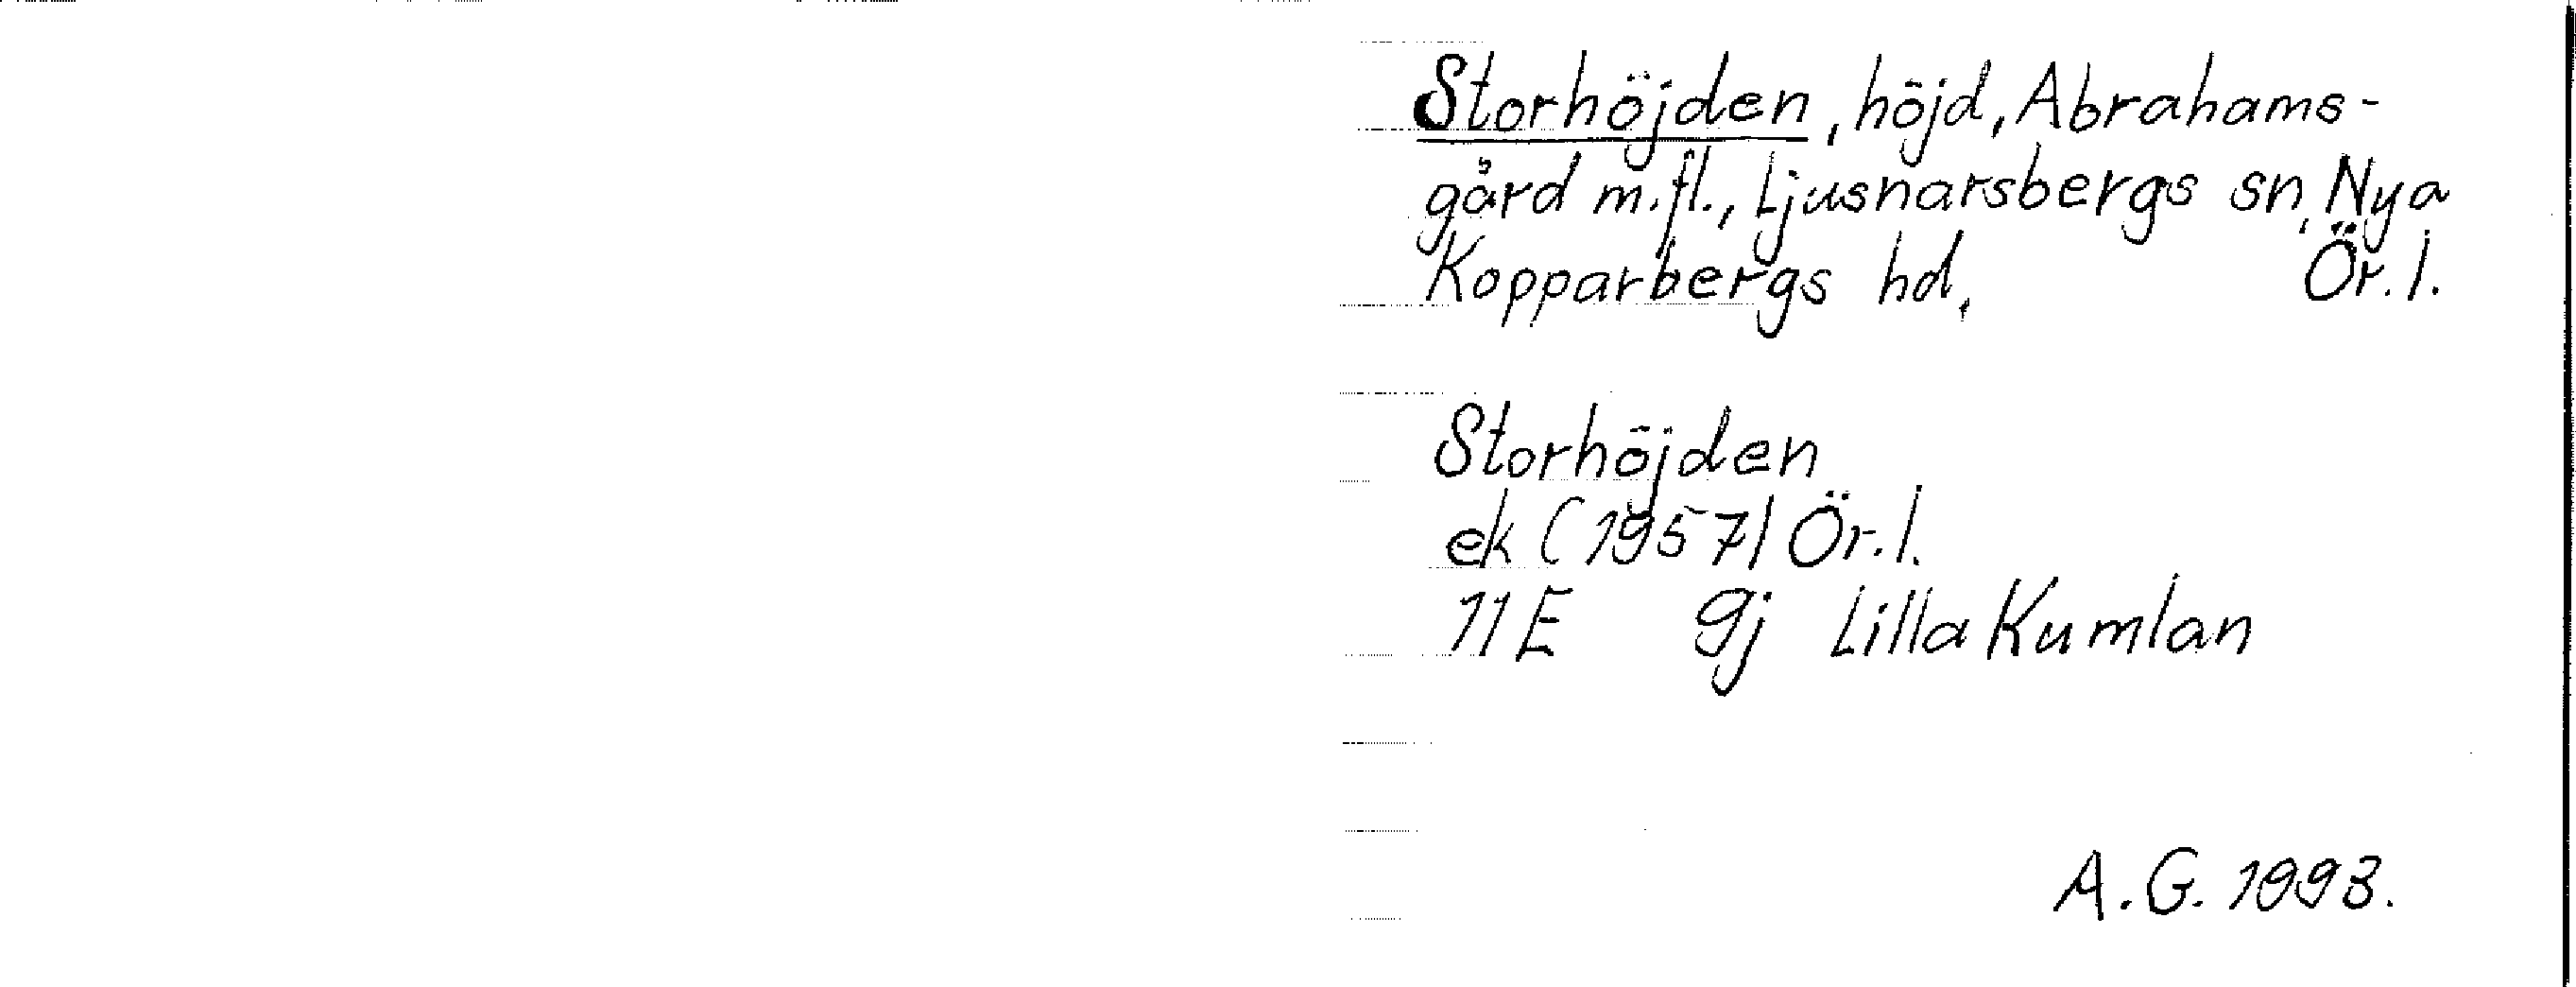 Storhöjden, höjd, Abrahams-
gård m.fl., Ljusnarsbergs sn, Nya
Kopparbergs hd, Ör. l.
Storhöjden
ek (1957) Ör. l.
11 E 9j Lilla Kumlan
A.G. 1993.